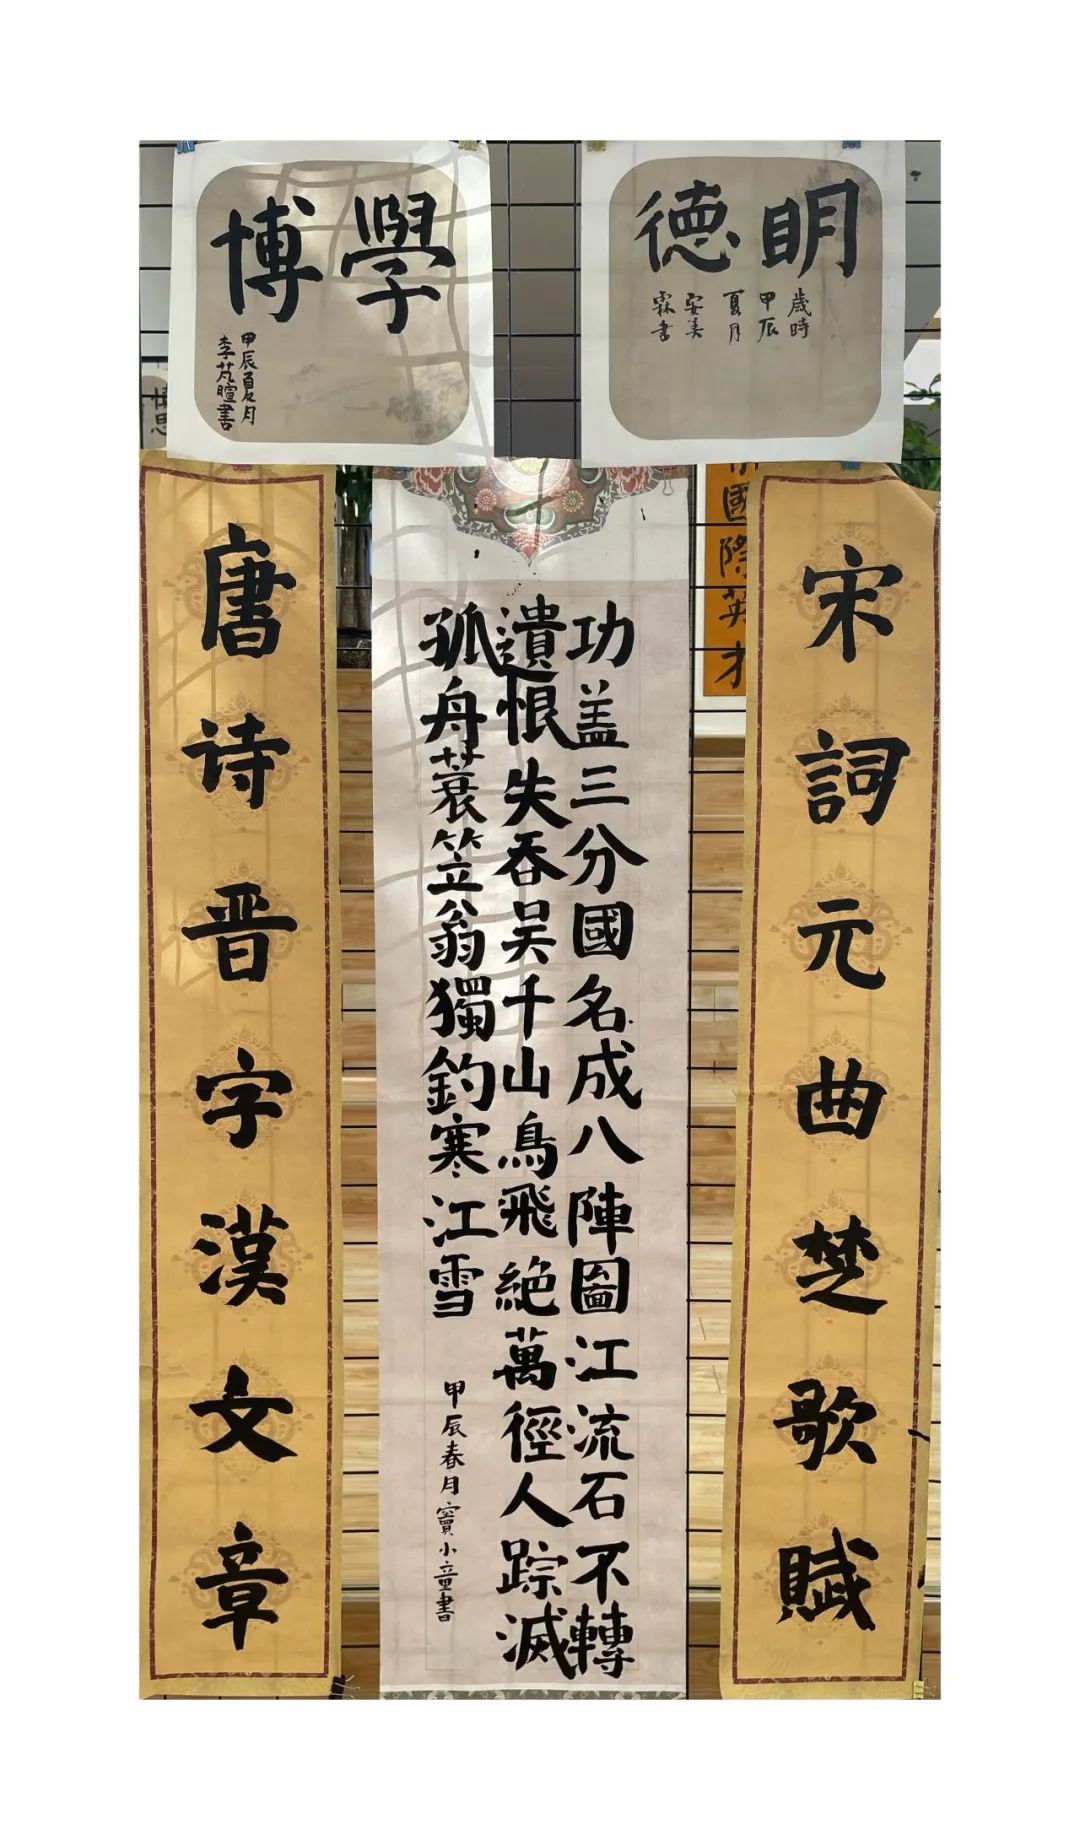 明德
歲時
甲辰
夏月
安美
霖書
學博
甲辰夏月
李芃暄書
宋詞元曲楚歌賦
國際英才
功盖三分國名成八陣圖江流石不轉
遺恨失吞吴千山鳥飛絕萬徑人踪滅
孤舟蓑笠翁獨釣寒江雪
甲辰春月竇小童書
唐诗晋字漢文章